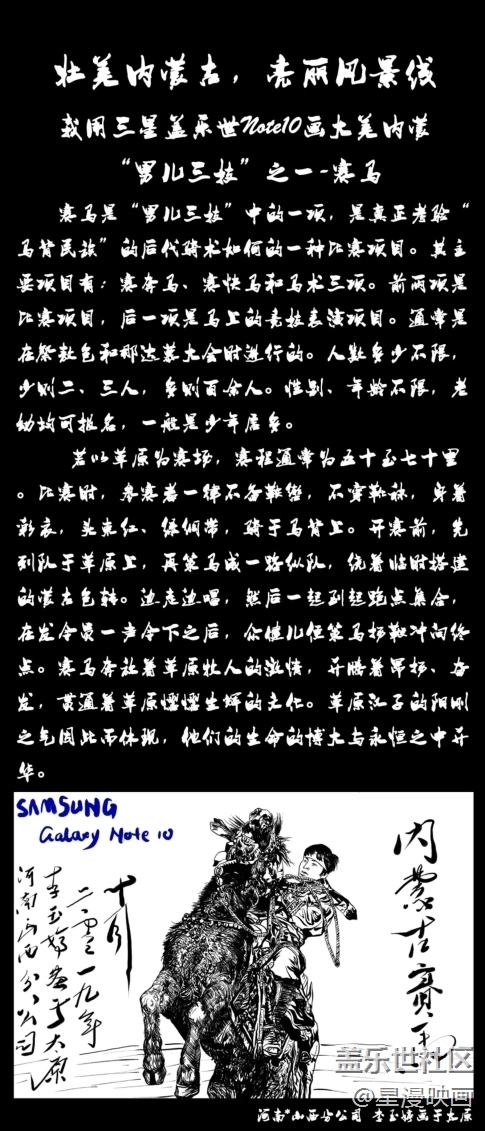 壮美内蒙古，亮丽风景线
我用三星盖乐世Note10画大美内蒙
“男儿三技”之一-赛马
赛马是“男儿三技”中的一项，是真正考验“
马背民族”的后代骑术如何的一种比赛项目。其主
要项目有：赛奔马、赛快马和马术三项。前两项是
比赛项目，后一项是马上的竞技表演项目。通常是
在祭敖包和那达慕大会时进行的。人数多少不限，
少则二、三人，多则百余人。性别、年龄不限，老
幼均可报名，一般是少年居多。
若以草原为赛场，赛程通常为五十至七十里
。比赛时，参赛者一律不备鞍辔，不穿靴袜，身着
彩衣，头束红、绿绸带，骑于马背上。开赛前，先
列队于草原上，再策马成一路纵队，绕着临时搭建
的蒙古包转。边走边唱，然后一起到起跑点集合，
在发令员一声令下之后，众健儿便策马扬鞭冲向终
点。赛马奔放着草原牧人的激情，升腾着昂扬、奋
发，贯通着草原熠熠生辉的文化。草原汉子的阳刚
之气因此而体现，他们的生命的博大与永恒之中升
华。
SAMSUNG
Galaxy Note 10
内蒙古赛马
十月
二零一九年
李玉婷画于太原
河南山西分公司
盖乐世社区
@星漫映画
河南*山西分公司 李玉婷画于太原